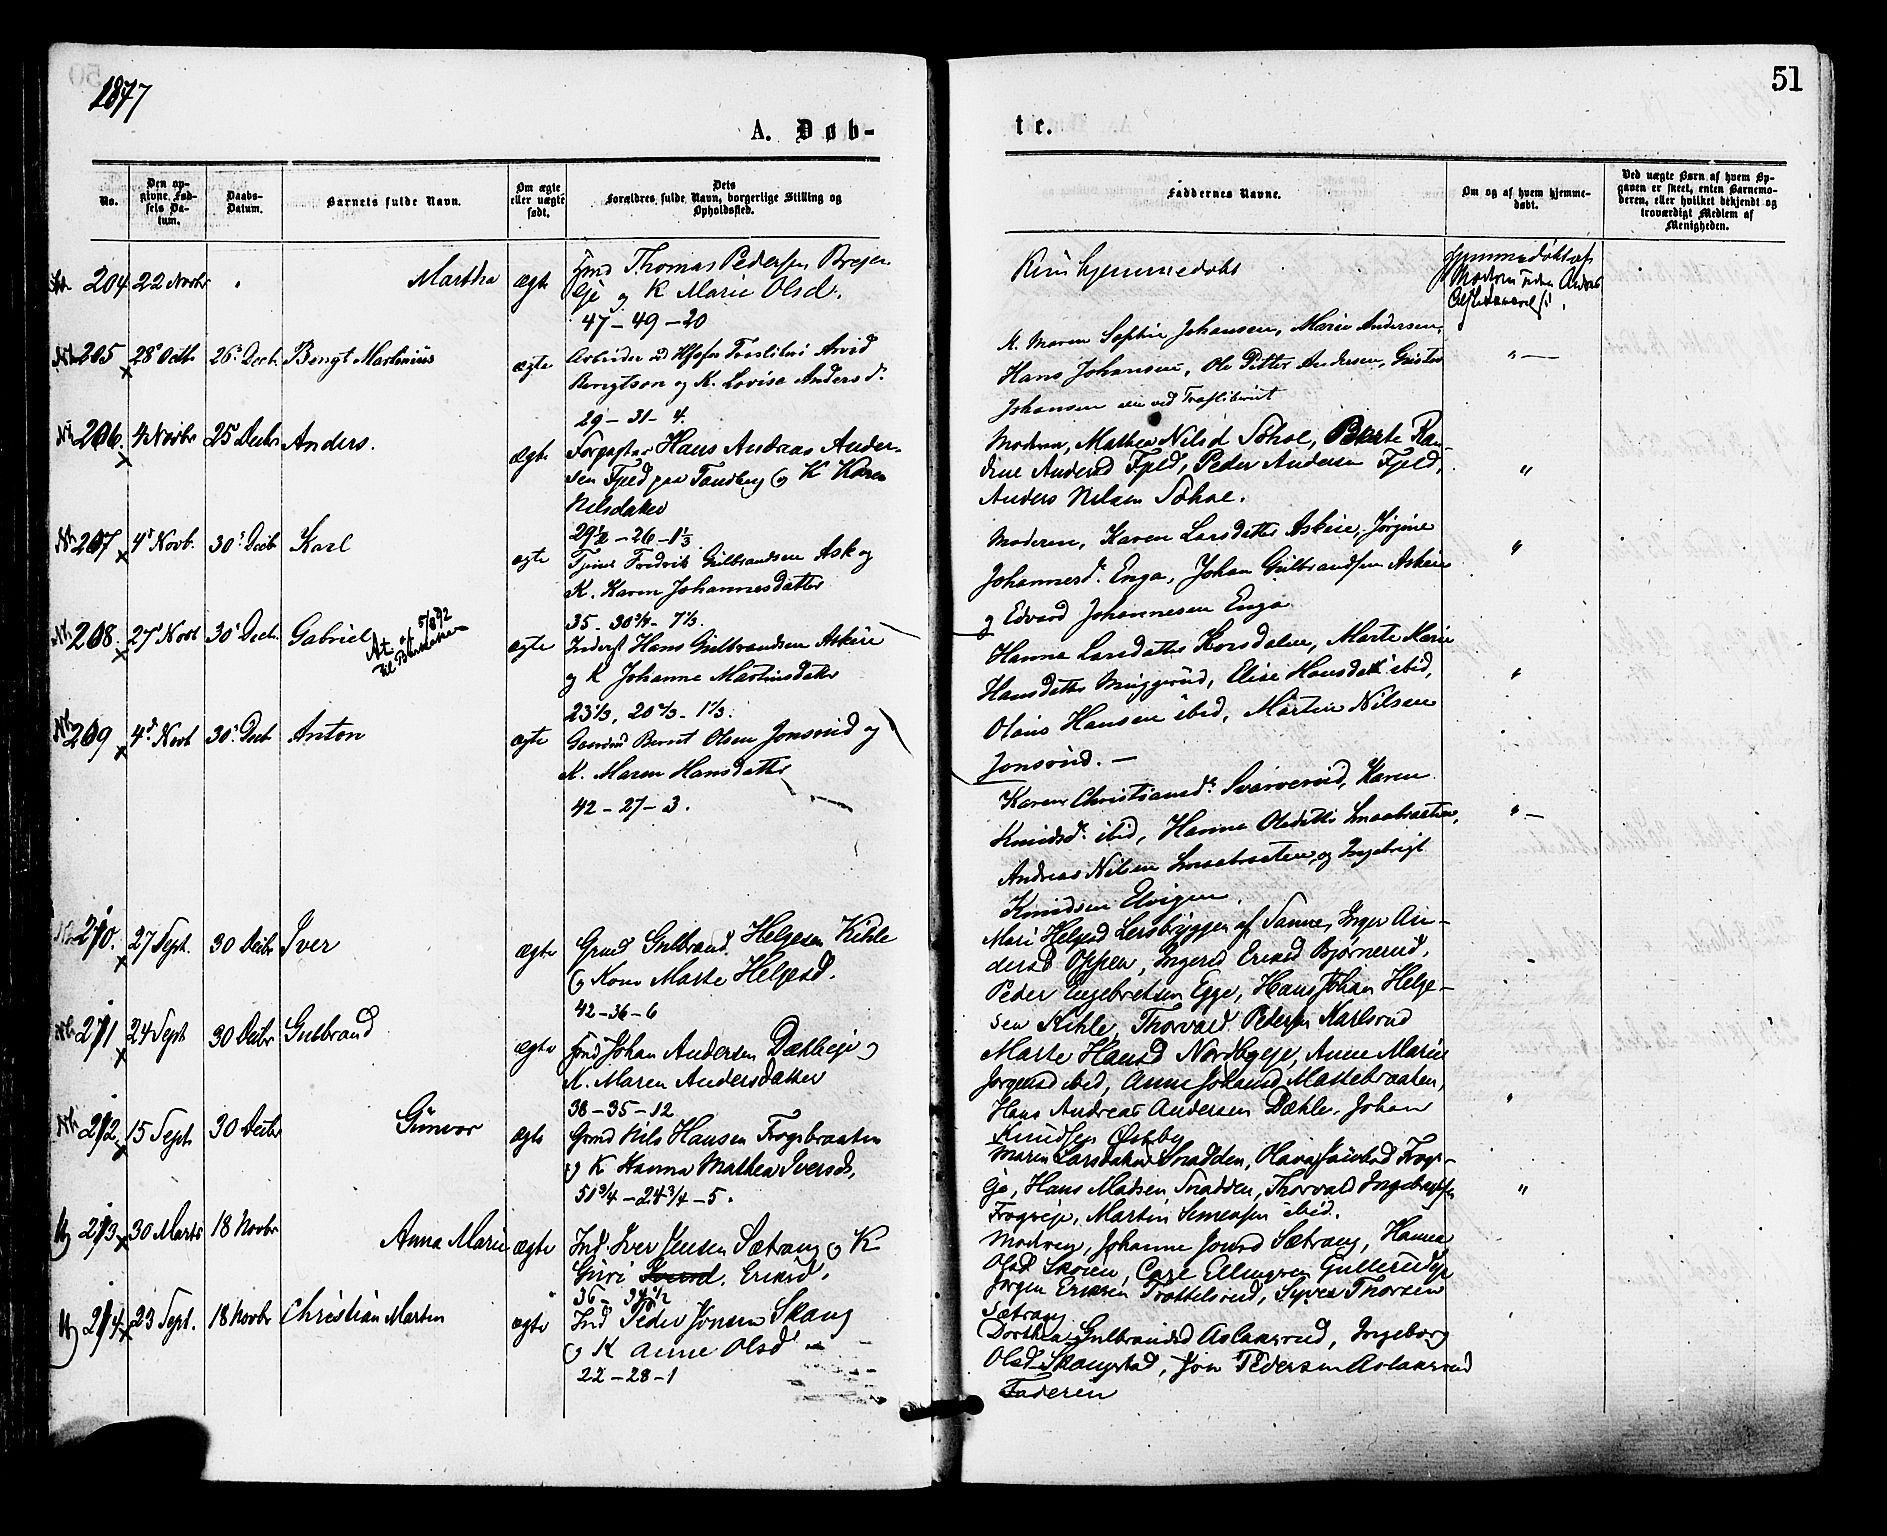 1877
51
A. Døb-
te.
No.
Den op-
givne Fød-
sels Da-
tum.
Daabs-
Datum.
Barnets fulde Navn.
Om ægte
eller uægte
født.
Dets
Forældres fulde Navn, borgerlige Stilling og
Opholdssted.
Faddernes Navne.
Om og af hvem hjemme-
døbt.
Ved uægte Børn af hvem Op-
gaven er skeet, enten Barnemo-
deren, eller hvilket bekjendt og
troværdigt Medlem af
Menigheden.
204 22 Novbr " Marthea ægte Thomas Pedersen
eje og K Marie Olsd.
47 - 49 - 20
Kun hjemmedøbt
Hjemmedøbt af
205 28 Octb 26 Decb. Bengt Martinius ægte Arbeider Arvid
Bengtson og K. Lovisa Andersd.
29 - 31 - 4
K. Maren Sophie Johansen, Marie Andersen,
Hans Johansen, Ole Petter Andersen, Gustav
Johansen
"
206. 4 Novbr 25 Decbr Anders. ægte Forpagter Hans Andreas Ander-
sen Fjeld paa Tandberg og K Karen
Nilsdatter
29½ - 26 - 1⅓
Moderen, Mathea Nilsd Søhol, Berte Ran-
dine Andersd Fjeld, Peder Andersen Fjeld,
Anders Nilsen Søhol.
"
207 4 Novb. 30 Decb Karl ægte Tjener Fredrik Gulbrandsen Ask og
K. Karen Johannesdatter
35 - 30¾ - 7⅓.
Moderen, Karen Larsdatter Askeie, Jørgine
Johannesd. Enga, Johan Gulbrandsen Askeie
og Edvard Johannesen Enga
"
208. 27 Novb 30 Decb. Gabriel ægte Inderst Hans Gulbrandsen Askeie
og K Johanne Martinsdatter
23⅓, 20⅔ - 1⅓.
At. 5/8 92
Hanna Larsdatter Korsdalen, Marte Marie
Hansdatter Muggerud, Elise Hansdatt ibid,
Olaus Hansen ibid, Martin Nilsen
Jonsrud. -
"
209 4 Novb 30 Decb Anton ægte Bernt Olsen Jonsrud og
K. Maren Hansdatter
42 - 27 - 3.
Karen Christiansd. Svarverud, Karen
Knudsd. ibid, Hanna Olsdatter
Andreas Nilsen og Ingebrigt
Knudsen Elvigen.
" -
210. 27 Sept. 30 Decbr Iver ægte Grmd Gulbrand Helgesen Kihle
og Kone Marte Helgesd.
42 - 36 - 6
Mari Helgesd Lersbryggen af Sanne, Inger An-
dersd Oppen, Ingerid Eriksd Bjørnerud,
Peder Engebretsen Egge, Hans Johan Helge-
sen Kihle, Thorvald Pedersen Karlsrud
211 24 Sept 30 Decbr Gulbrand ægte Johan Andersen Dæhleje og
K. Maren Andersdatter
38 - 35 - 12
Marte Hansd Nordbyeje, Anne Marie
Jørgensd ibid, Anne Johansd Mattebraaten,
Hans Andreas Andersen Dæhle, Johan
Knudsen Østby
"
212 15 Sept 30 Decbr Gunvor ægte Grmd Nils Hansen Frogsbraaten
og K Hanna Mathea Iversd,
51¾ - 24¾ - 5.
Maren Larsdatter Snadden, Olava
eje, Hans Madsen Snadden, Thorvald Ingebretsen
Frogeje, Martin Simensen ibid.
"
213 30 Marts 18 Novbr Anna Marie ægte Ind Iver Jensen Sætrang og K
Guri Eriksd.
36 - 34½
Moderen, Johanne Jonsd Sætrang, Hanna
Olsd Skoien, Carl Ellingsen Gullerudeje
Jørgen Eriksen Trøttelsrud, Syver Thorsen
Sætrang
214 23 Sept. 18 Novbr Christian Martin ægte Ind Peder Jonsen Skaug
og K Anne Olsd
22 - 28 - 1
Dorthea Gulbrandsd Aslaksrud, Ingeborg
Olsd Skaugstad, Jon Pedersen Aslaksrud
Faderen